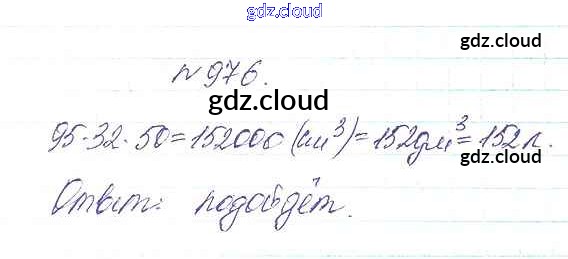 gdz.cloud
gdz.cloud
№976.
gdz.cloud
95·32·50=152000(см³)=152дм³=152л.
gdz.cloud
Ответ: подойдёт.
gdz.cloud
gdz.cloud